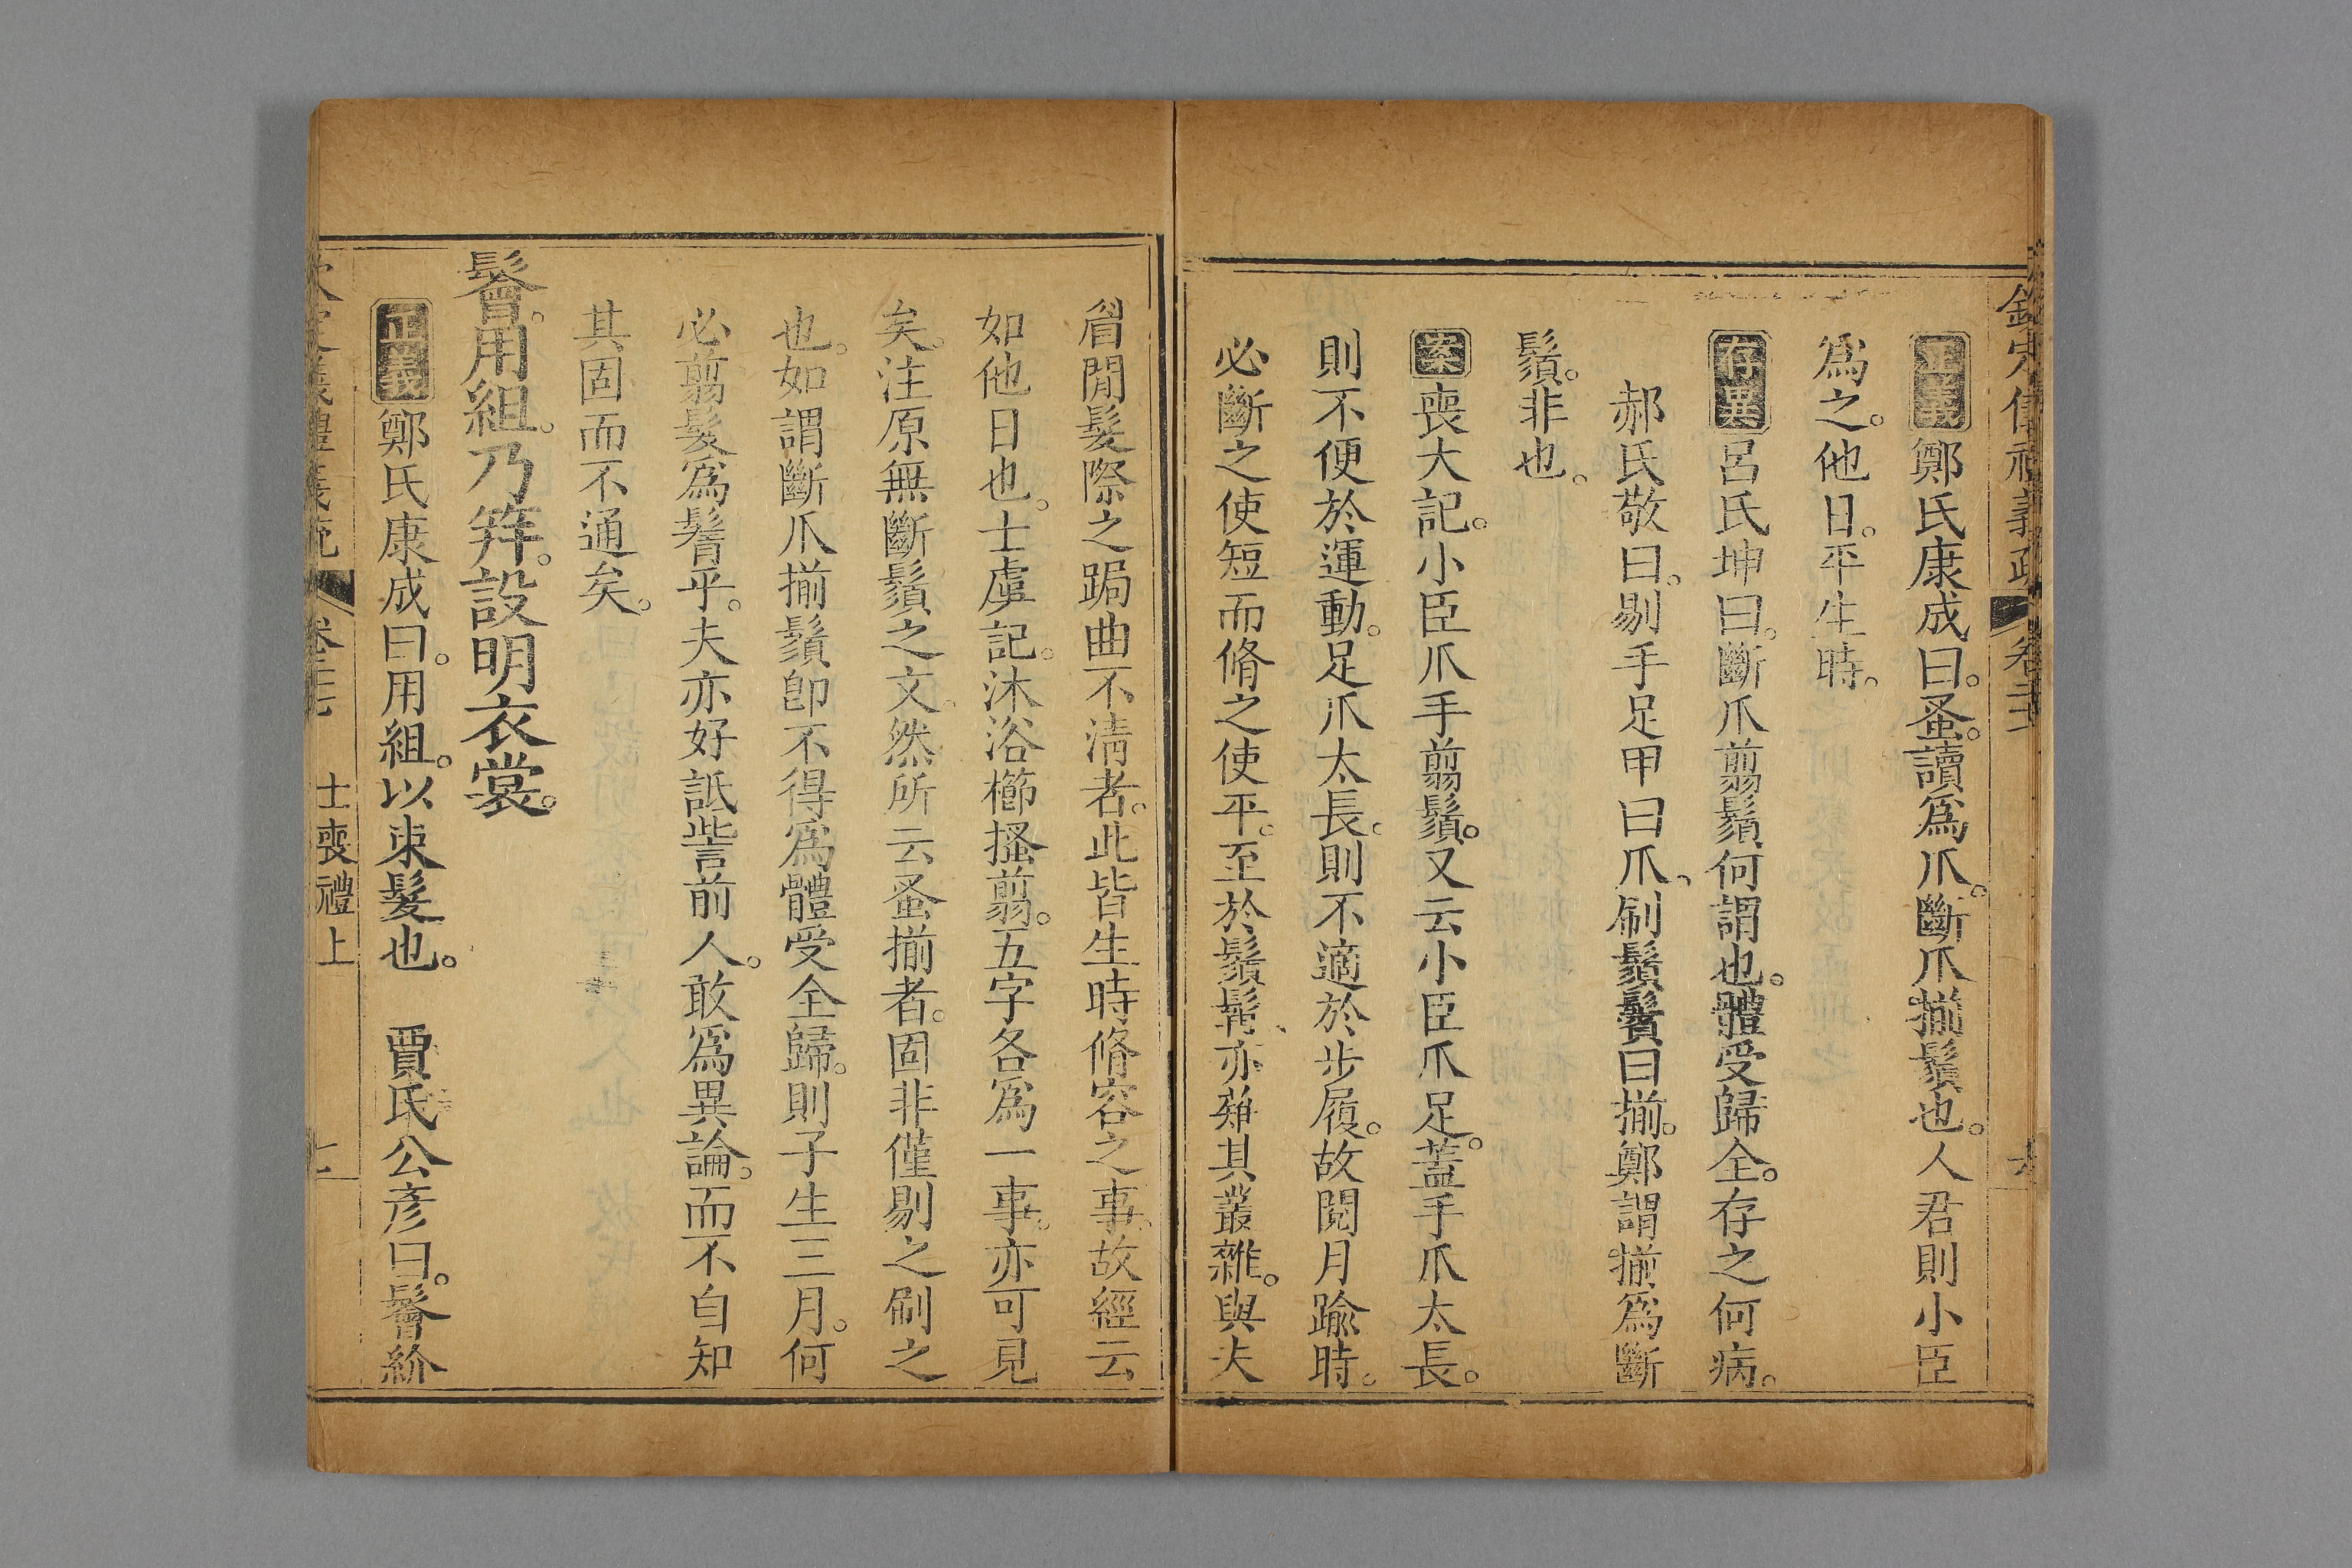 欽定儀禮義疏 卷二十七
正義鄭氏康成曰。蚤。讀爲爪。斷爪揃鬚也。人君則小臣
爲之。他日。平生時。
存異呂氏坤曰。斷爪剪鬚何謂也。體受歸全。存之何病。
郝氏敬曰。剔手足甲曰爪、刷鬚鬢曰揃。鄭謂揃爲斷
鬚。非也。
案喪大記。小臣爪手翦鬚。又云小臣爪足。蓋手爪太長。
則不便於運動。足爪太長。則不適於步履。故閱月踰時。
必斷之使短而脩之使平。至於鬚髯、亦薙其叢雜。與夫
眉閒髮際之跼曲不淸者。此皆生時脩容之事。故經云
如他日也。士虞記。沐浴櫛搔翦。五字各爲一事。亦可見
矣。注原無斷鬚之文。然所云蚤揃者。固非僅剔之刷之
也。如謂斷爪揃鬚卽不得爲體受全歸。則子生三月。何
必翦髮爲鬌乎。夫亦好詆訾前人。敢爲異論。而不自知
其固而不通矣。
鬠。用組。乃笄。設明衣裳。
正義鄭氏康成曰。用組。以束髮也。 賈氏公彥曰。鬠紒
欽定儀禮義疏 卷二十七 士喪禮上